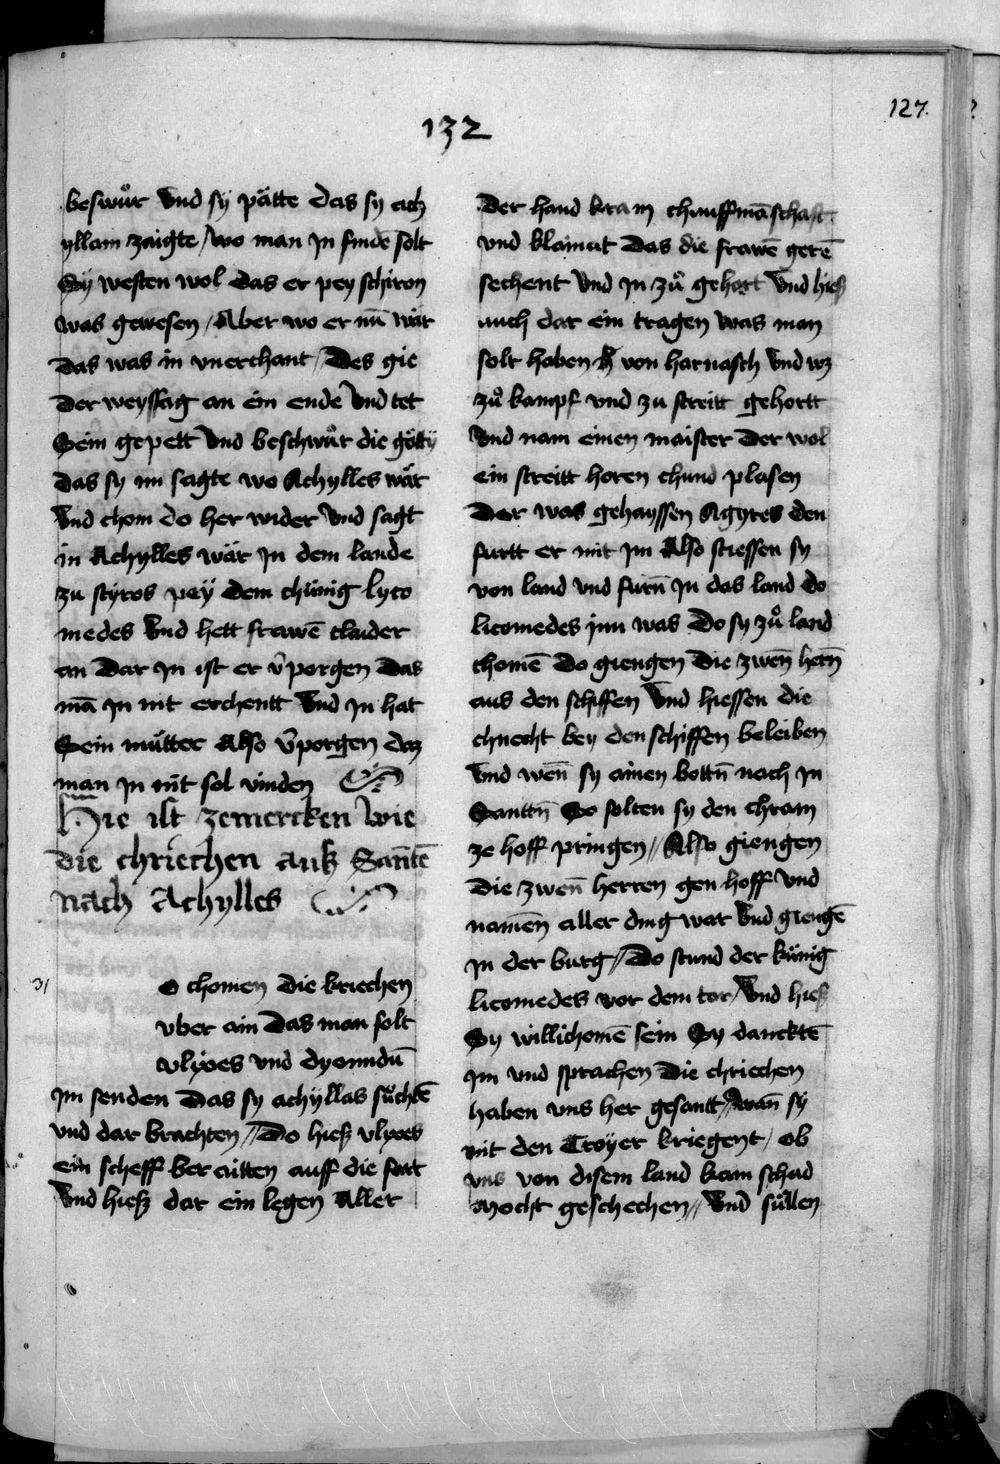 127.
132
beswůr vnd sy pätte das sy ach
yllam zaigte / wo man jn findē solt
Sy westen wol das er pey schiron
was gewesen / Aber wo er nū wär
das was in vnerchant / Des gie
der weyssag an ein ende vnd tet
Sein gepett vnd beschwůr die götty
das sy im sagte wo Achylles wär
vnd chom do her wider vnd sagt
in Achylles wär jn dem lande
zu styros pey dem chünig lyco
medes vnd hett frawē claider
an dar jn ist er v̄porgen das
mā jn nit erchentt vnd jn hat
Sein můtter also v̄porgen daz
man jn nit sol vinden
Hie ist zemercken wie
die chriechen auß Santē
nach Achylles
31
o chomen die kriechen
vber ain das man solt
vlyxes vnd dyomidū
jm senden das sy achyllas sůchtē
vnd dar brachten // Do hieß vlyxes
ein scheff beraitten auff die fart
vnd hieß dar ein legen aller
der hand kram chauffmāschaft
vnd klainat das die frawē gerē
sechent vnd jn zů gehort vnd hieß
auch dar ein tragen was man
solt haben von harnasch vnd wz
zů kampf vnd zu streitt gehortt
vnd nam einen maister der wol
ein streitt horen chund plasen
der was gehayssen Agyres den
furtt er mit jm Also stiessen sy
von land vnd furn̄ jn das land do
licomedes jnn was Do sy zů land
chomē do giengen die zwen̄ hern̄
aus den schiffen vnd hiessen die
chnecht bey den schiffen beleiben
vnd wen̄ sy ainen bottn̄ nach jn
Santtn̄ So solten sy den chram
ze hoff pringen // Also giengen
die zwen̄ herren gen hoff vnd
namen̄ aller ding war vnd giengē
jn der burg / Do stund der künig
licomedes vor dem tor / vnd hieß
Sy willichomē sein Sy danckte̅
jm vnd sprachen die chriechen
haben vns her gesantt / wan̄ sy
mit den Troyer kriegent / ob
vns von disem land kain schad
mocht geschechen // vnd süllen